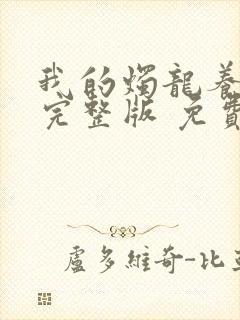 我的燭龍養
完整版 免費
盧多維奇-比亞